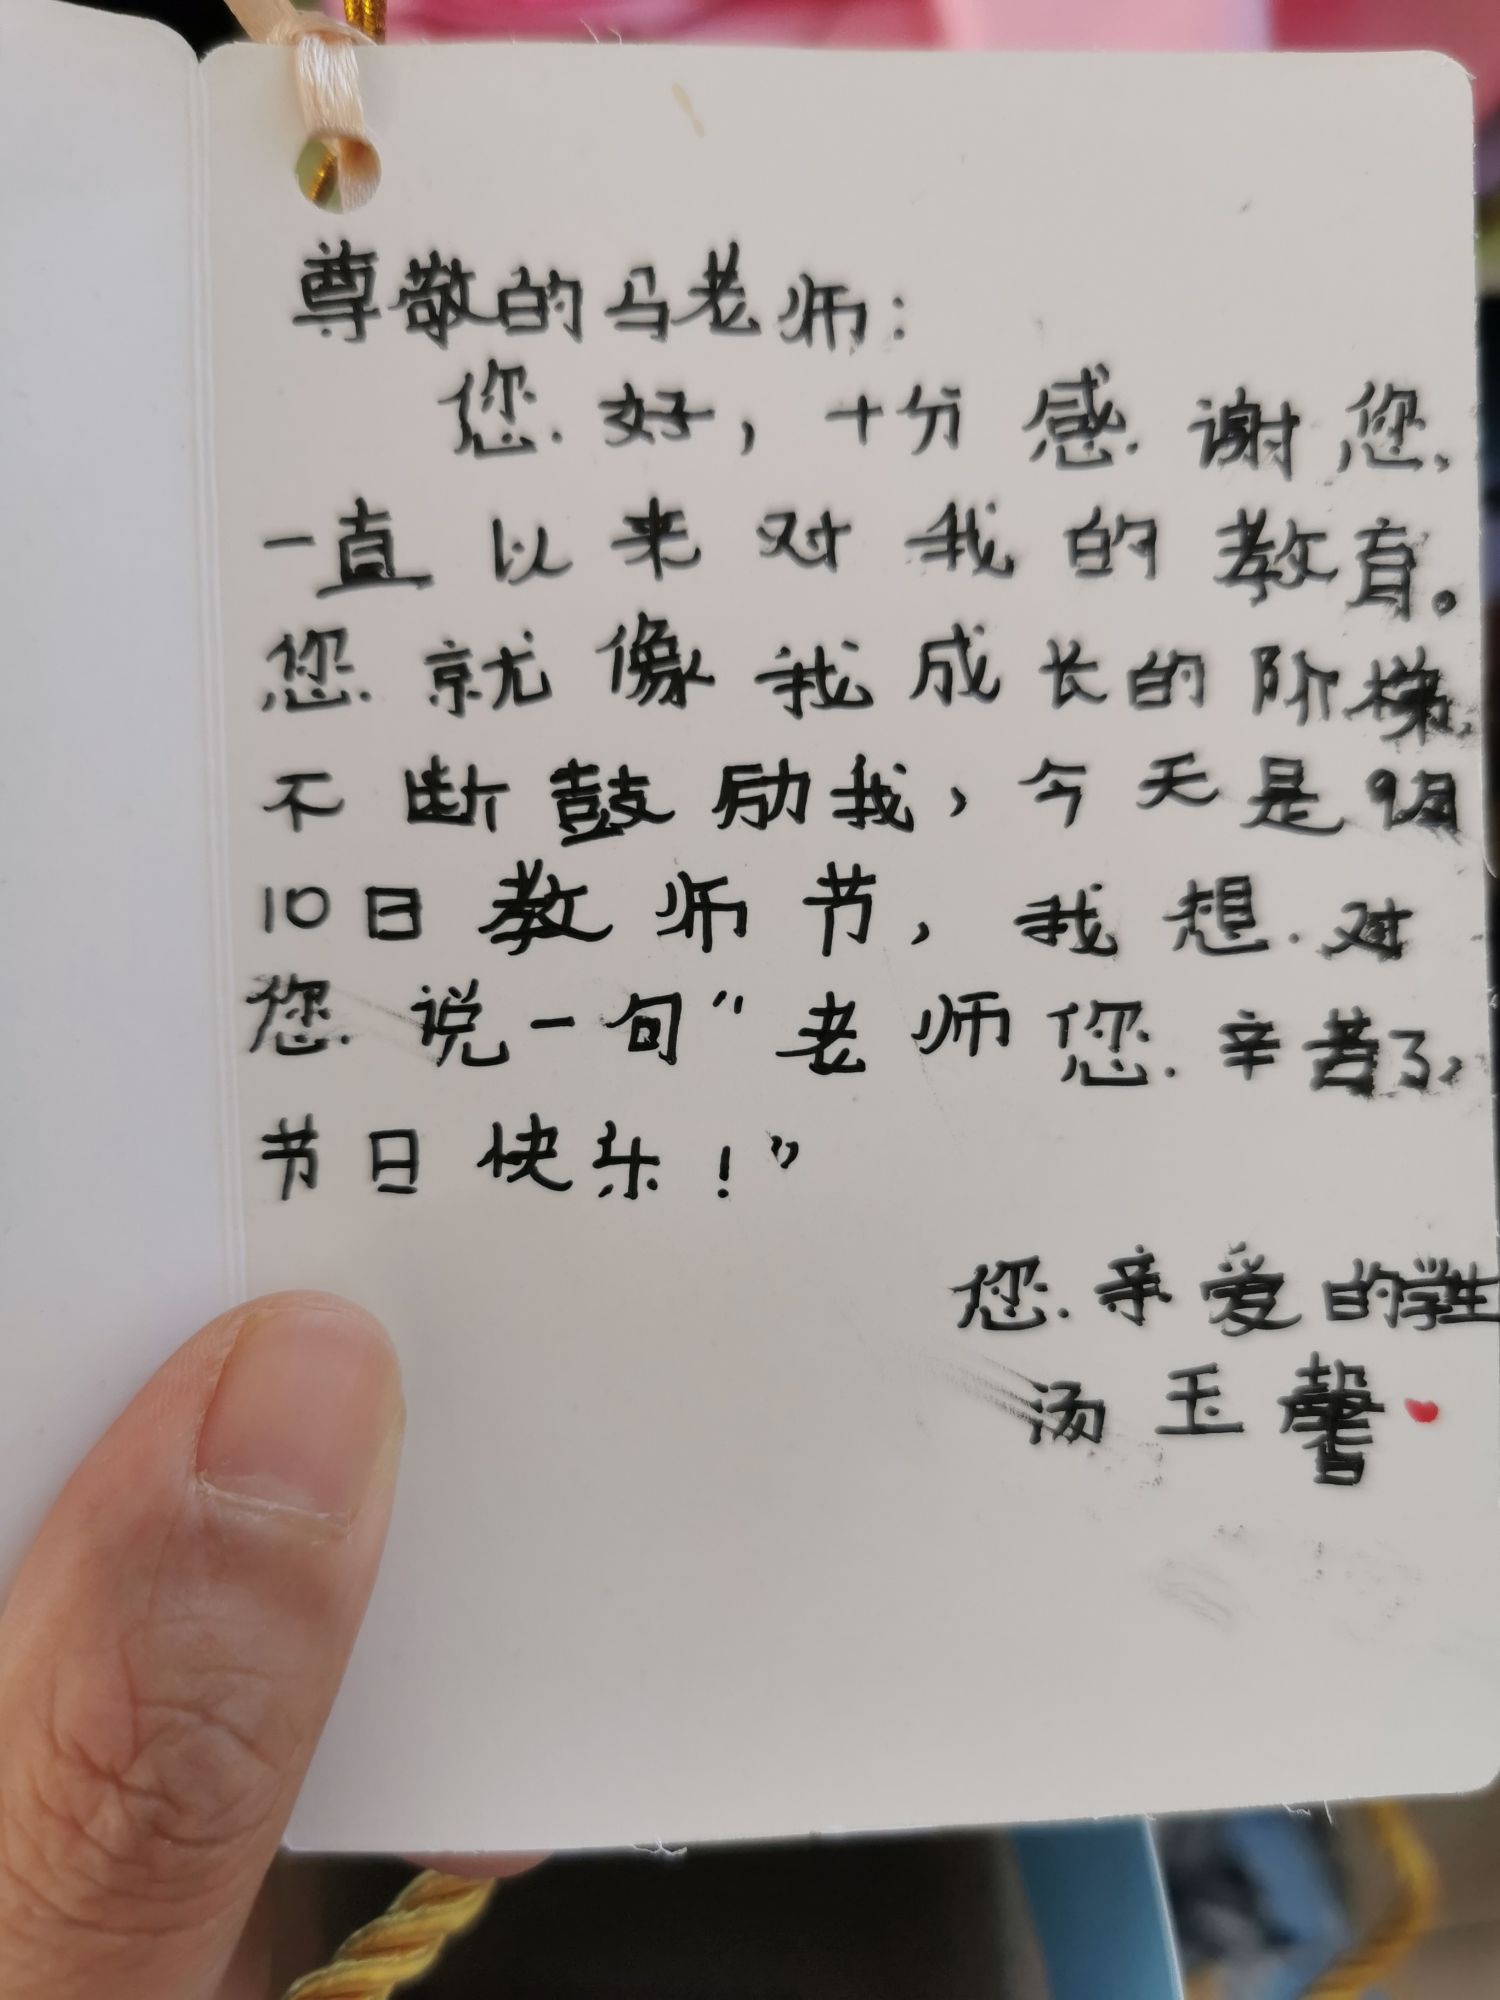 尊敬的马老师：
您好，十分感谢您，
一直以来对我的教育。
您就像我成长的阶梯，
不断鼓励我，今天是9月
10日教师节，我想对
您说一句“老师您辛苦了，
节日快乐！”
您亲爱的学生
汤玉馨